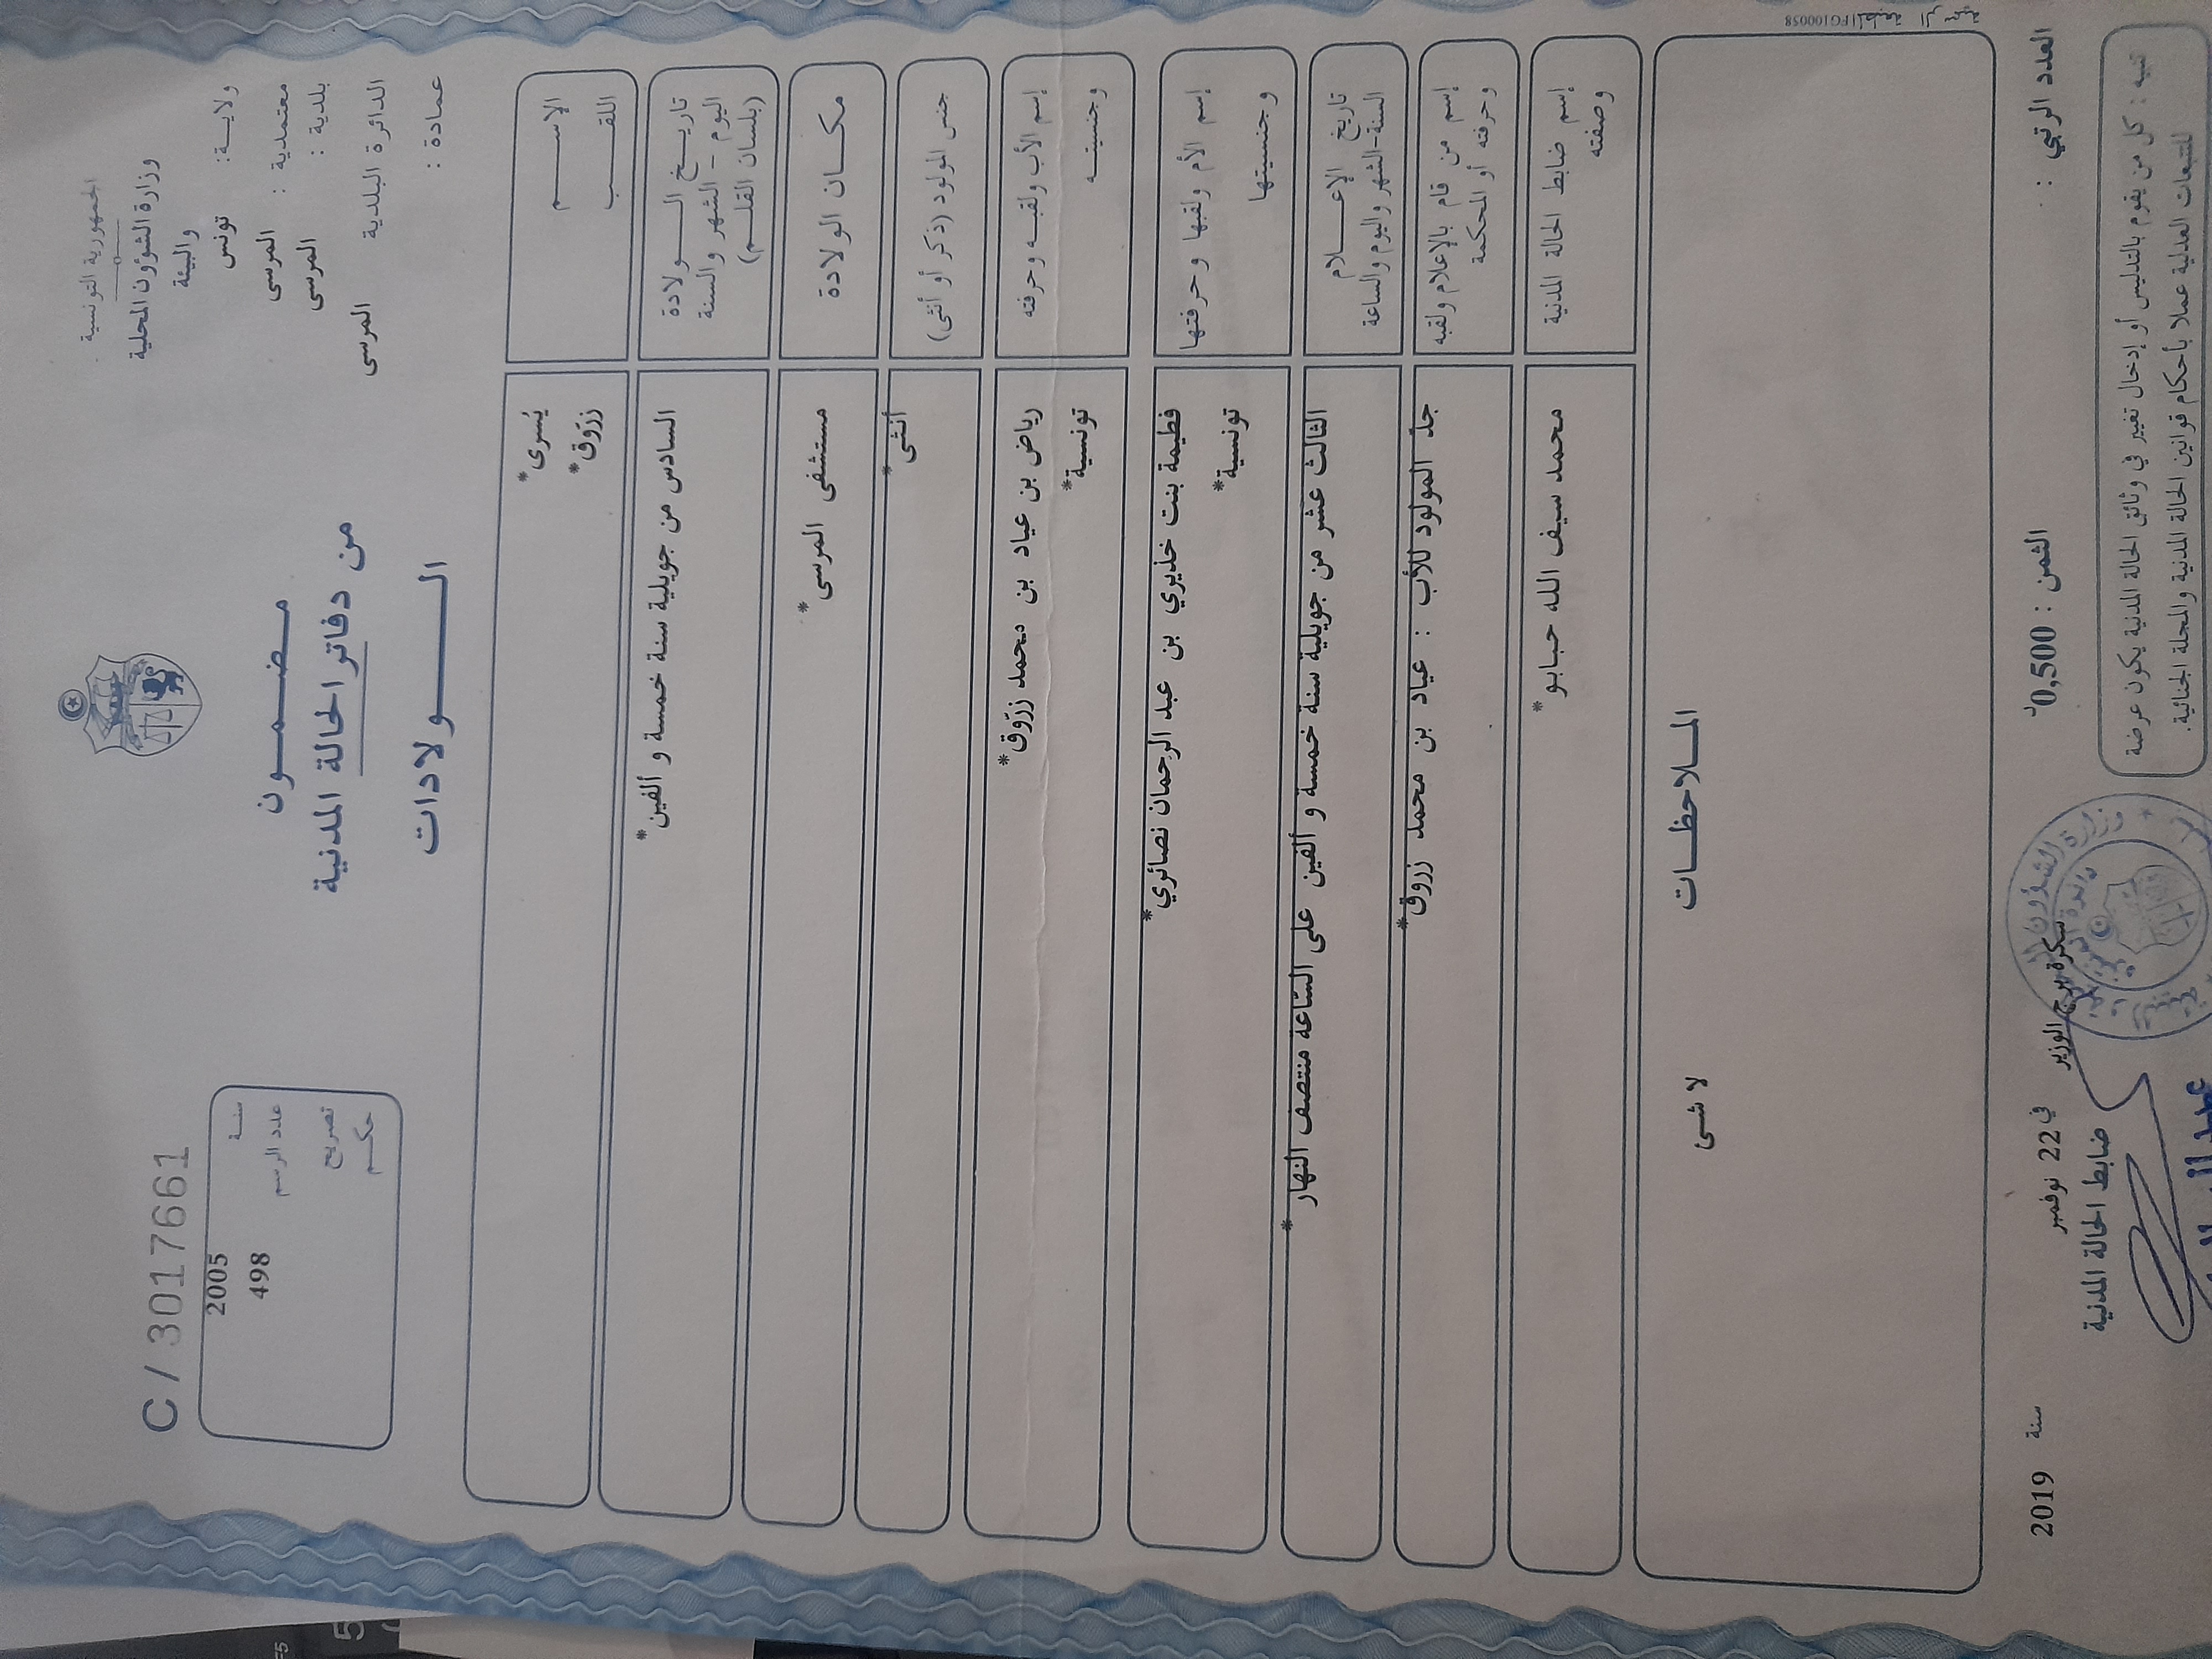 الجمهورية التونسية
وزارة الشؤون المحلية
والبيئة
ولايـــة: تونس
معتمدية : المرسى
بلدية : المرسى
الدائرة البلدية المرسى
عمادة :
مـــضـــمـــون
من دفاتر الحالة المدنية
الــــولادات
C / 3017661
سنــة 2005
عدد الرسم 498
تصريح
حكــم
الإســـــم يُسرى*
اللقـــــب زرّوق*
تاريــخ الـــــولادة السادس من جويلية سنة خمسة و ألفين*
اليوم - الشهر والسنة
(بلسان القلـــم)
مكـــان الولادة مستشفى المرسى*
جنس المولود (ذكر أو أنثى) أنثى*
إسم الأب ولقبـه وحرفته رياض بن عياد بن محمد زرّوق*
وجنسيتــه تونسية*
إسم الأم ولقبها وحرفتها فطيمة بنت خذيري بن عبد الرحمان نصائري*
وجنسيتها تونسية*
تاريخ الإعـــــلام الثالث عشر من جويلية سنة خمسة و ألفين على السّاعة منتصف النهار*
السنة-الشهر واليوم والساعة
إسم من قام بالإعلام ولقبه جدّ المولود للأب : عياد بن محمد زروق*
وحرفته أو المحكمة
إسم ضابط الحالة المدنية محمد سيف الله حبابو*
وصفته
المـــلاحظـــات
لا شئ
العدد الرتبي :
الثمن : 0,500د
سكرة برج الوزير في 22 نوفمبر سنة 2019
ضابط الحالة المدنية
تنبيه : كل من يقوم بالتدليس أو إدخال تغيير في وثائق الحالة المدنية يكون عرضة
للتتبعات العدلية عملا بأحكام قوانين الحالة المدنية والمجلة الجنائية.